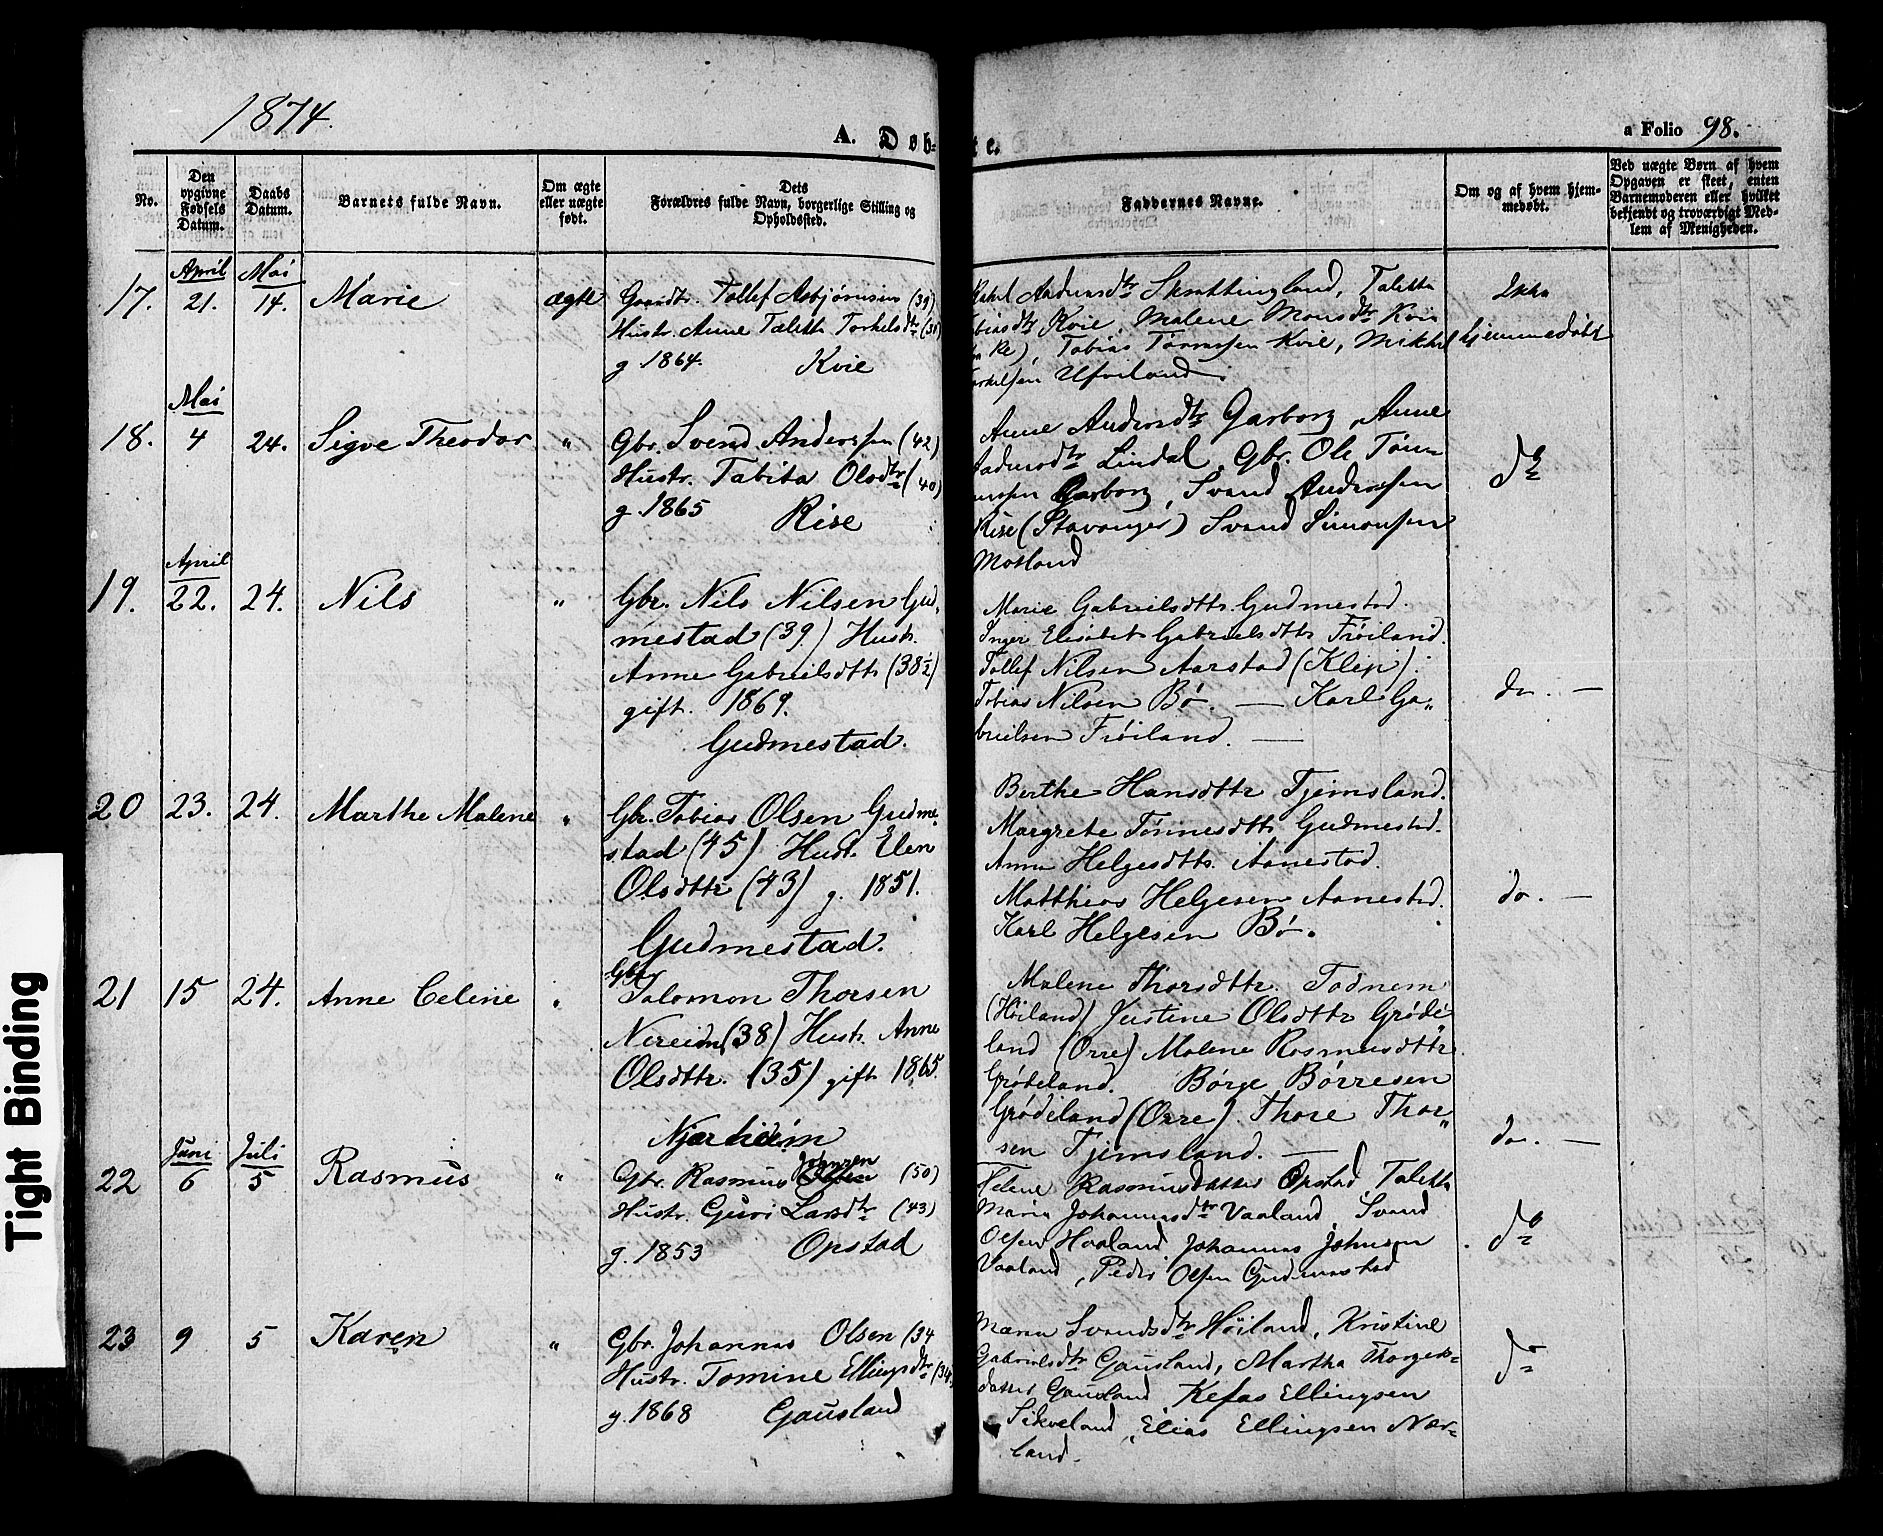 1874.
A. Døb-
te.
a Folio 98.
No.
Den opgivne Fødsels Datum.
Daabs Datum.
Barnets fulde Navn.
Om ægte eller uægte født.
Dets Forældres fulde Navn, borgerlige Stilling og Opholdssted.
Faddernes Navne.
Om og af hvem hjemmedøbt.
Ved uægte Børn af hvem Opgaven er skeet, enten Barnemoderen eller hvilket bekjendt og troværdigt Medlem af Menigheden.
17. April 21. Mai 14. Marie ægte
Gaardbr. Tollef Asbjørnsen (39)
Hustr. Anne Taletta Torkelsdtr
g 1864. Kvie
Andersdtr Skrettingland, Taletta
Tobiasdtr Kvie, Malene Monsdtr Kvie
Tobias Tønnessen Kvie, Mikkel
Torkelsen Ufviland.
Ikke
hjemmedøbt
18. Mai 4 24. Sigve Theodor "
Gbr. Svend Anderssen (42)
Hustr. Tabita Olsdtr (40)
g. 1865 Rise
Anne Andersdtr Garborg, Anne
Andersdtr Lindal, Gbr. Ole Tøn-
nessen Garborg, Svend Anderssen
Rise (Stavanger) Svend Simonsen
Motland
do
19. April 22. 24. Nils "
Gbr. Nils Nilsen Gud-
mestad (39) Hustr.
Anne Gabrielsdttr (38½)
gift. 1869.
Gudmestad.
Marie Gabrielsdttr. Gudmestad.
Inger Elisabet Gabrielsdttr Frøiland.
Tollef Nilsen Aarstad (Klep).
Tobias Nilsen Bø. — Karl Ga„
brielsen Frøiland. —
do. —
20 23. 24. Marthe Malene "
Gbr. Tobias Olsen Gudme-
stad (45) Hustr. Elen
Olsdttr (43) g. 1851.
Gudmestad.
Berthe Hansdttr Tjemsland.
Margrete Tønnesdttr Gudmestad.
Anna Helgesdttr. Aanestad.
Matthias Helgesen Aanestad.
Karl Helgesen Bø.
do. —
21 15 24. Anne Celene "
Gbr.
Salomon Thorsen
Nereim (38) Hustr. Anne
Olsdttr. (35) gift 1865.
Njærheim
Malene Thorsdttr. Todnem
(Høiland) Justine Olsdttr Grøde„
land (Orre) Malene Rasmusdttr
Grødeland. Børge Børresen
Grødeland (Orre). Thore Thor„
sen Tjemsland. —
do. —
22 Juni 6 Juli 5 Rasmus "
Gbr. Rasmus Johnsen (50)
Hustr. Guri Larsdtr (43)
g. 1853 Opstad
Helene Rasmusdatter Opstad, Taletta
Maria Johannesdtr Vaaland, Svend
Olsen Haaland, Johannes Johnsen
Vaaland, Peder Olsen Gudmestad
do
23 9 5 Karen "
Gbr. Johannes Olsen (34
Hustr. Tomine Ellingsdtr (34)
g. 1868 Gausland
Maren Svendsdtr Høiland, Kristine
Gabrielsdtr Gausland, Martha Thorger-
datter Gausland Kefas Ellingsen
Sikveland, Elias Ellingsen Nær-
land.
do
Tight Binding